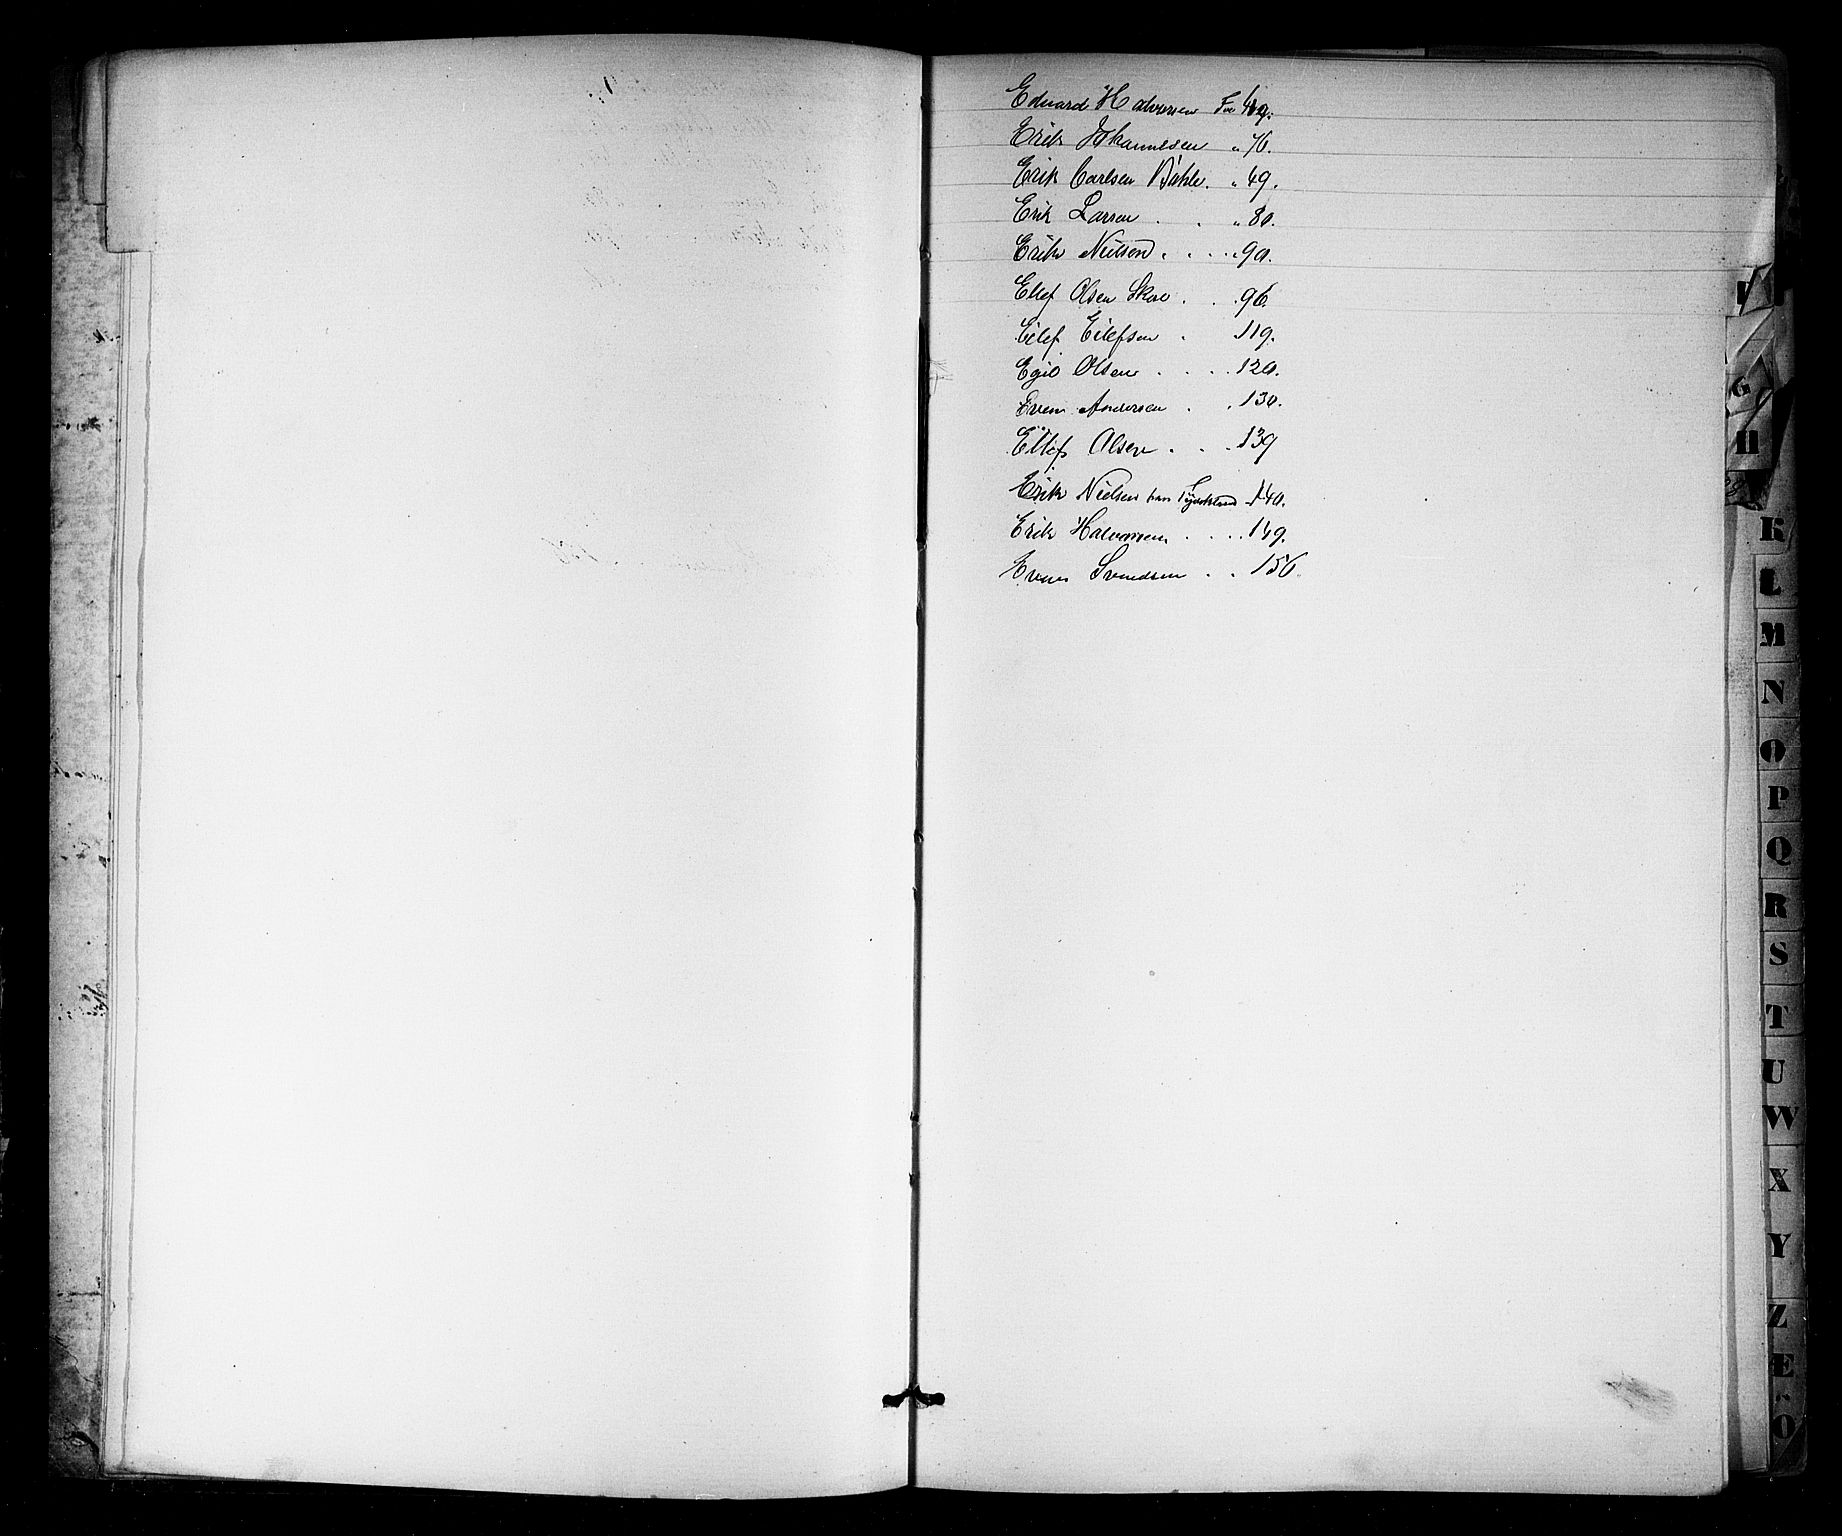 Eduard Halvorsen Fol 49.
Erik Johannesen " 76.
Erik Carlsen Bakle. " 49.
Erik Larsen . . " 80.
Erik Nielsen . . . . 90.
Ellef Olsen Skoe . . . 96.
Eilef Eilefsen . 119.
Egil Olsen . . . . 120.
Even Andersen . . 130.
Ellef Olsen . . . 139
Erik Nielsen 140.
Erik Halvorsen . . . . 149.
Even Svendsen . . 156.
G
H
K
L
M
N
O
P
Q
R
S
T
U
W
X
Y
Z
Æ
Ö